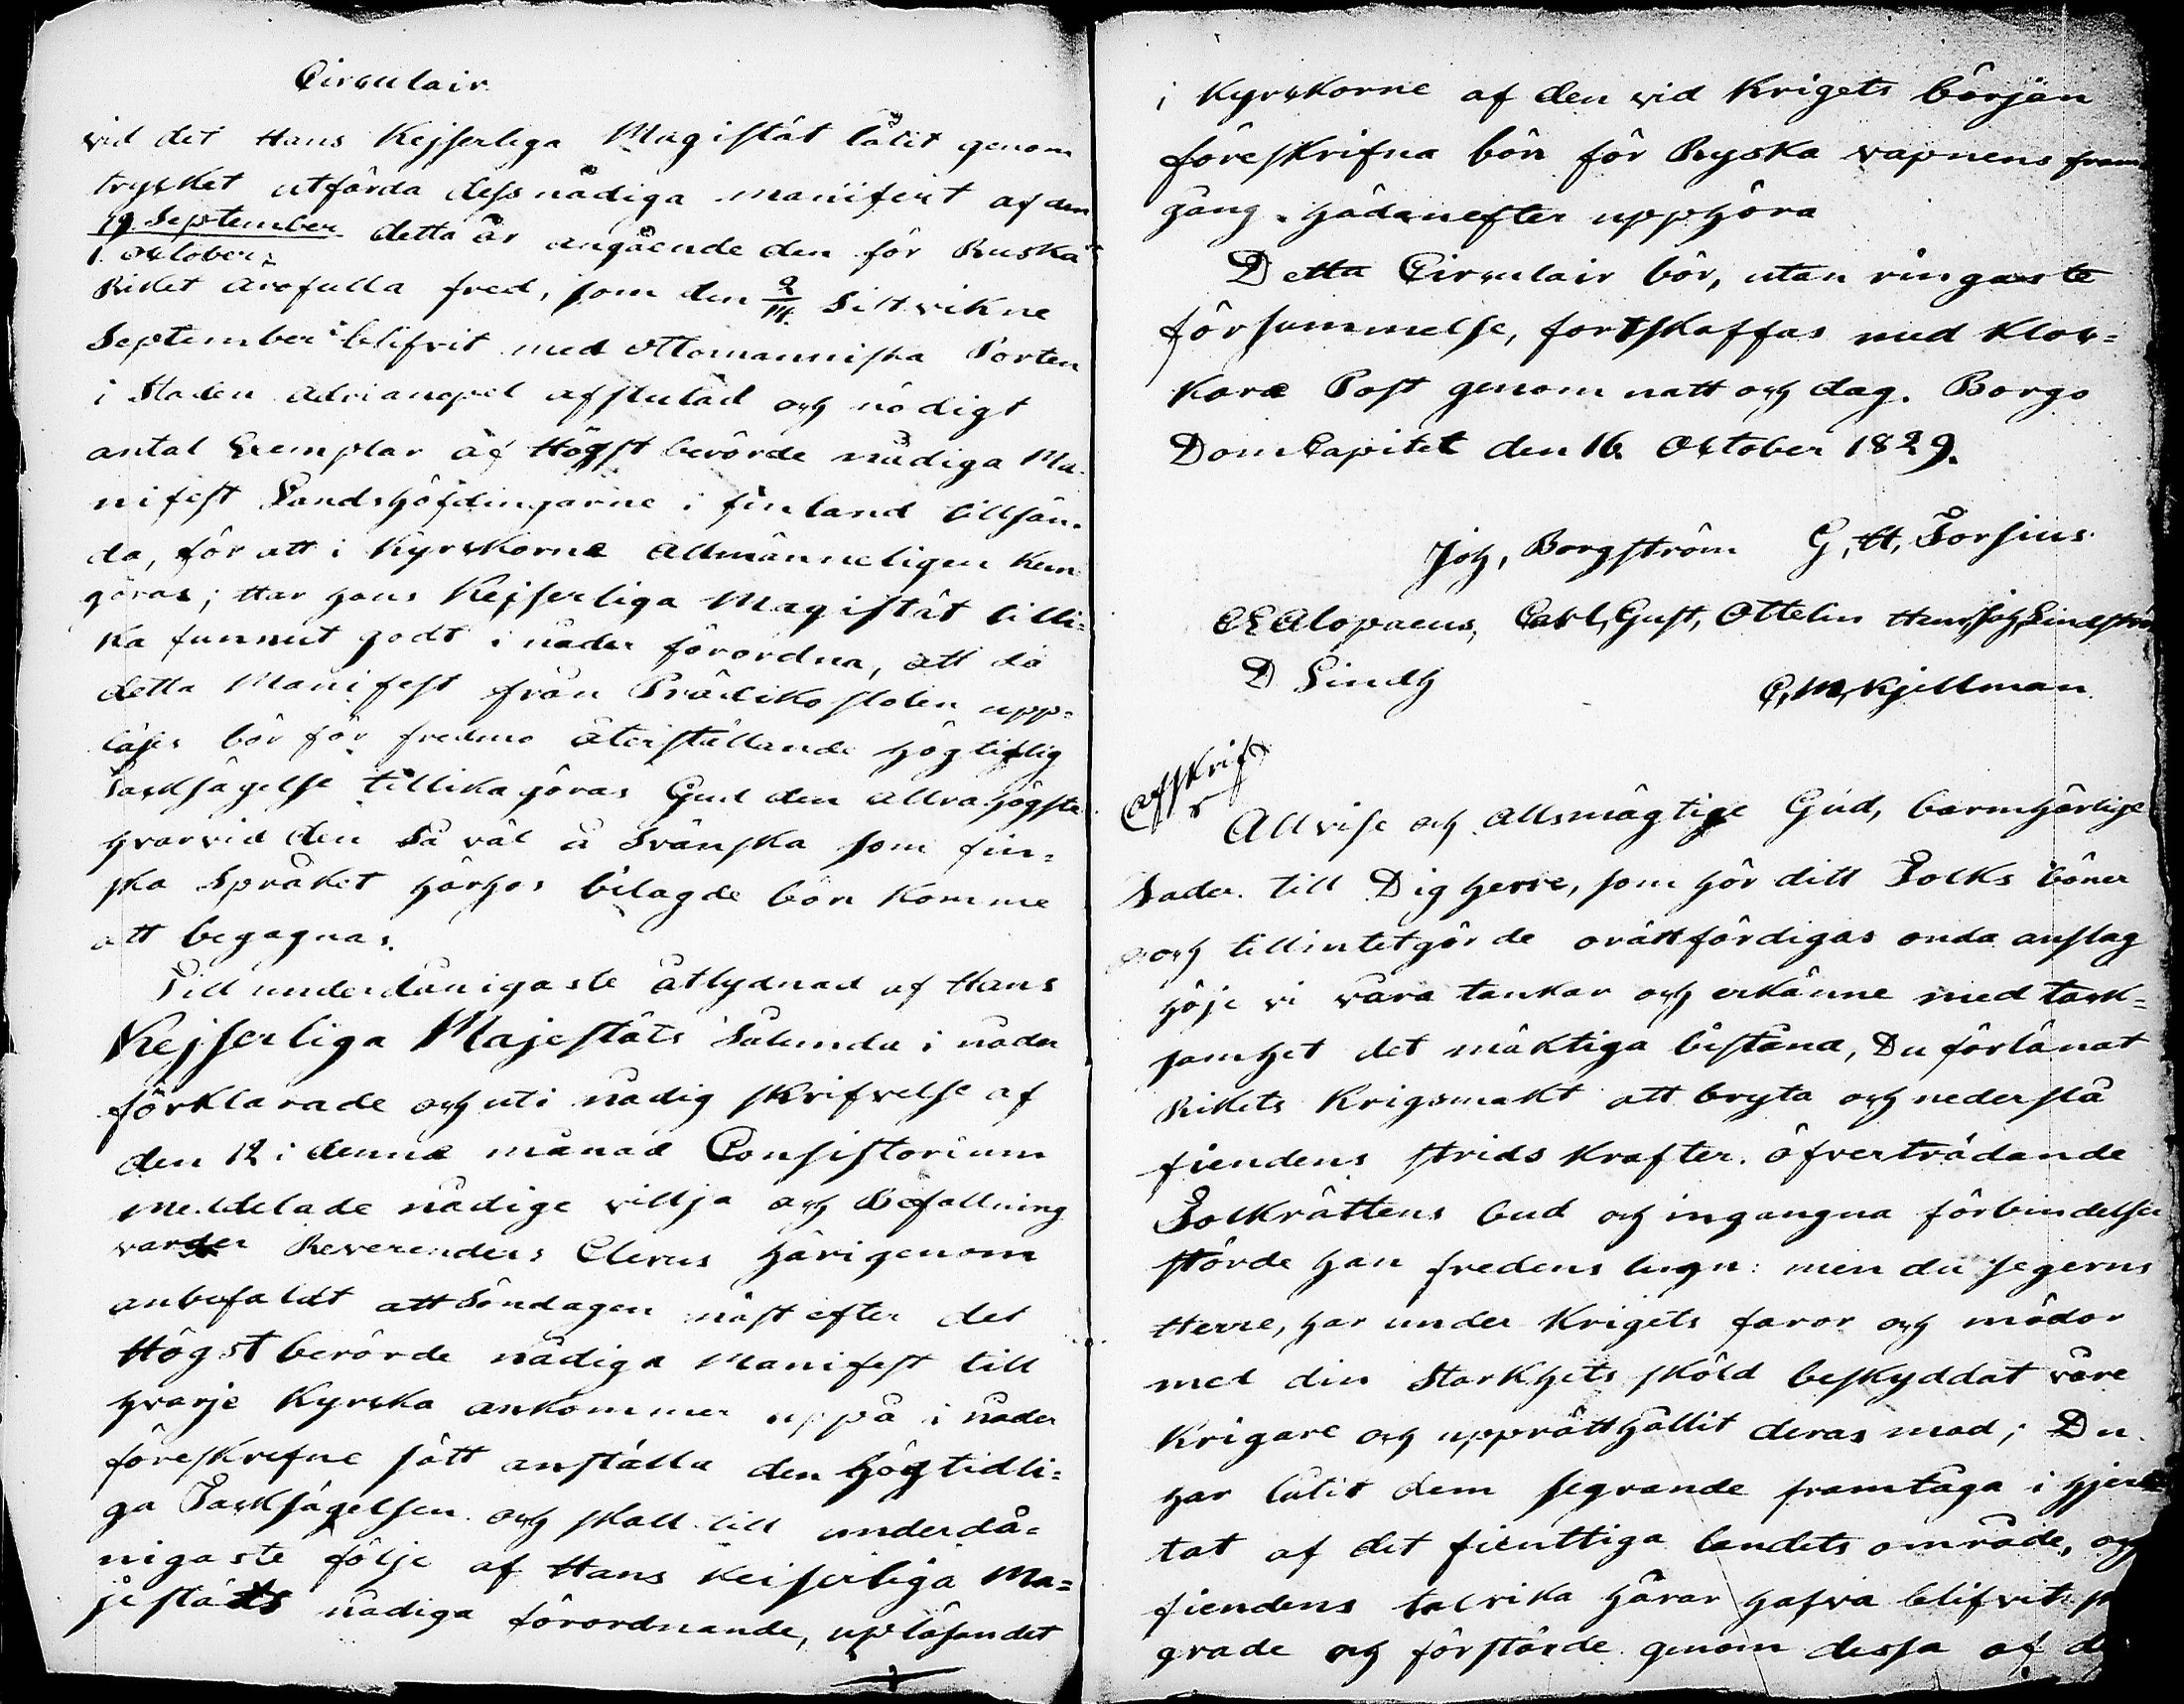 Circulair
vid det Hans Kejserliga Magistät låtit genom
trycket utfärda dess nådiga manifest af den
19 September
1. October
detta år angående den för Ruska
Riket ärofulla fred, som den 2/14 Sistvikne
September blifvit med Ottomanniska Porten
i Staden Adrianopel afslutad och nödigt
antal Exemplar af Högst berörde nådiga Ma-
nifest Landshöfdingarne i finland tillsän-
da, för att i Kyrkorne allmänneligen kun-
göras; Har hans Kejserliga Magistät tilli-
ka funnit godt i nåder förordna, att då
detta Manifest från Prädikostolen upp-
läses bör för fredens återställande högtidlig
Tacksägelse tillika göras Gud den allrahögste
hvarvid den så väl å Svänska som fin-
ska Språket härhos bilagde bön komme
att begagnas.
Till underdånigaste åtlydnad af Hans
Kejserliga Majestäts Sålunda i nåder
förklarade och uti nådig skrifvelse af
den 12 i denna månad Consistorium
meddelade nådige villja och Befallning
varder Reverenders Clerus härigenom
anbefaldt att Söndagen näst efter det
Högst berörde nådiga Manifest till
hvarje Kyrcka ankommer uppå i nåder
föreskrefne sätt anställa den högtidli-
ga Tacksägelsen och skall till underdå-
nigaste följe af Hans Keiserliga Ma-
jestäts nådiga förordnande, upläsandet
i Kyrckorne af den vid Krigets början
föreskrifna bön för Ryska vapnens fram
gång hädanefter upphöra
Detta Circulair bör, utan ringaste
försummelse, fortskaffas med Kloc-
kare Post genom natt och dag. Borgo
DomCapitel den 16 October 1829.
Joh, Borgström G, H, Forsius
C E Alopaeus, Carl, Gust, Ottelin Hans, Joh, Lindströ
D Lindh C, M, Kjellman
Afskrift
Allvise och allsmägtige Gud, barmhärtige
Fader. till Dig herre, som hör ditt Folks böner
och tillintetgör de orättfärdigas onda anslag
höje vi våra tankar och erkänne med tack-
samhet det mäktiga bistånd, Du förlänat
Rikets Krigsmakt att bryta och nederslå
fiendens strids krafter. öfverträdande
Folkrättens bud och ingangna förbindelser
störde han fredens lugn: men du segerns
Herre, har under Krigets faror och mödor
med din Starkhets sköld beskyddat våre
Krigare och upprätthållit deras mod; Du
har låtit dem segrande framtåga i hjer
tat af det fienttiga landets område, och
fiendens talrika härar hafva blifvit
grade och förstörde genom dessa af d